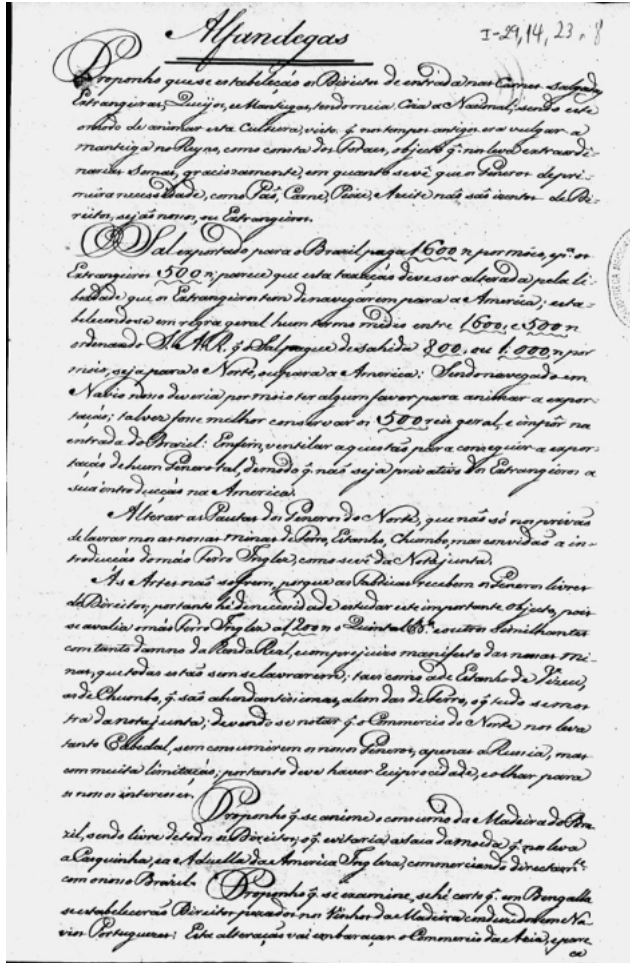 Alfandegas
I-29,14,23,8
Proponho que se estabeleção os Direitos de entrada nas Carnes salgadas
Extrangeiras, Queijos, e Manteigas, tendo meia Ciza a Nacional, sendo este
o modo de animar esta Cultura, visto q̃ nos tempos antigos era vulgar a
manteiga no Reyno, como consta dos Foraes, objecto q̃ nos leva extraordi-
narias somas, graciozamente, em quanto se vê que os Generos de pri-
meira necessidade, como Paõ, Carne, Peixe, e Azeite não são izentos de Di-
reitos, sejaõ nossos, ou Extrangeiros.
O Sal exportado para o Brazil paga 1600 r̃ por moio, e p.ª os
Extrangeiros 500 r̃; parece que esta taxação deve ser alterada pela li-
berdade que os Extrangeiros tem de navegarem para a America; esta-
belecendo se em regra geral hum termo médio entre 1600, e 500 r̃
ordenando S. A. R. q̃ o Sal pague de sahida 800, ou 1.000 r̃ por
moio, seja para o Norte, ou para a America: Sendo navegado em
Navio nosso deveria por moio ter algum favor para animar a expor-
tação; talvez fosse melhor conservar os 500 reis geral, e impôr na
entrada do Brazil: Emfim, ventilar a questaõ para conseguir a expor-
tação de hum Genero tal, de modo q̃ naõ seja privativo dos Extrangeiros a
sua introducção na America.
Alterar as Pautas dos Generos do Norte, que não só nos privaõ
de lavrarmos as nossas minas de Ferro, Estanho, Chumbo, mas convidaõ a in-
troducção do máo Ferro Inglez, como se vê da Nota junta.
As Artes naõ sofrem, porque as Fabricas recebem os Generos livres
de Direitos; portanto hé de necessidade estudar este importante objecto, pois
se avalia o máo Ferro Inglez a 1200 r̃ o Quintal &.ª e outros semilhantes
com tanto damno da Renda Real, e com prejuizo manifesto das nossas mi-
nas, que todas estaõ sem se lavrarem; taes como a de Estanho de Vizeu,
as de Chumbo, q̃ saõ abundantissimas, alem das de Ferro, o q̃ tudo se mos-
tra da nota junta; devendo se notar q̃ o Commercio do Norte nos leva
tanto Cabedal, sem consumirem os nossos Generos, apenas a Russia, mas
com muita limitação; portanto deve haver reciprocidade, e olhar para
os nossos interesses.
Proponho q̃ se anime o consumo da Madeira do Bra-
zil, sendo livre de todos os Direitos; o q̃ evitaria a saca da moeda q̃ nos leva
a Casquinha, e a Aduella da America Ingleza, commerciando directam.te
com o nosso Brazil.
Proponho q̃ se examine, se hé certo q̃ em Bengalla
se estabelecerão Direitos pezados nos Vinhos da Madeira conduzidos em Na-
vios Portuguezes: Esta alteração vai embaraçar o Commercio da Azia, e pare
ce